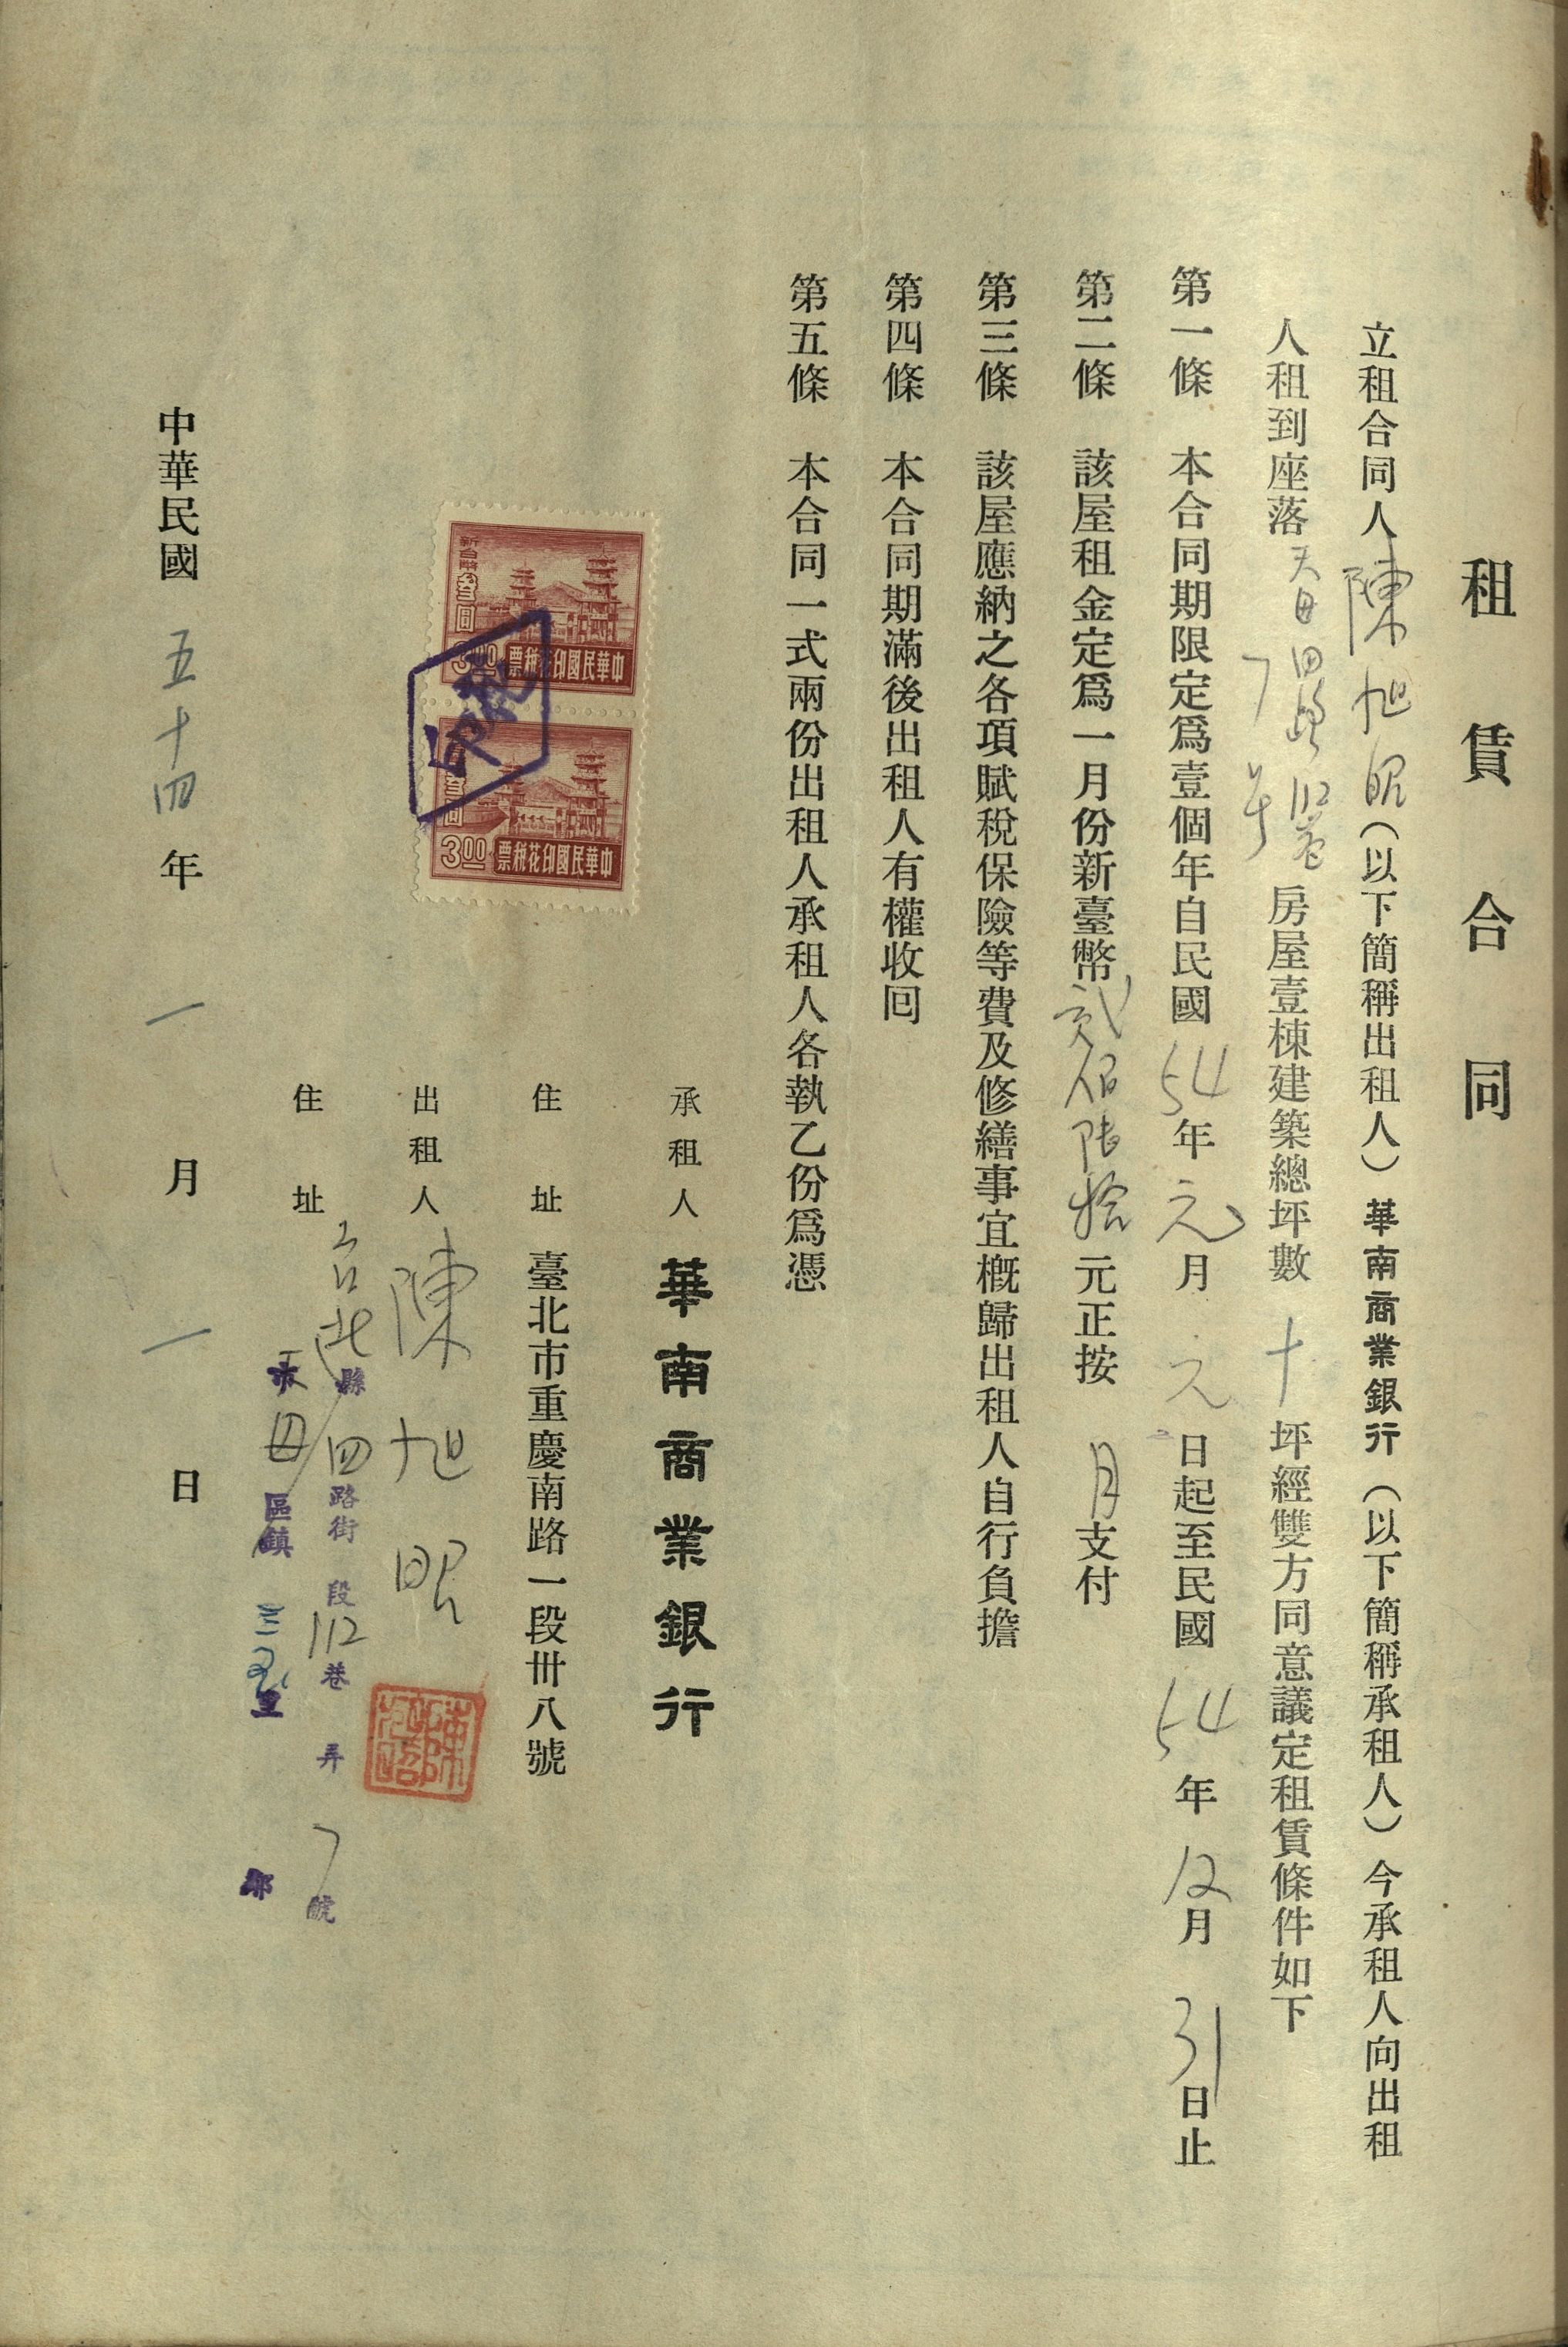 租賃合同
立租合同人陳旭昭（以下簡稱出租人）華南商業銀行（以下簡稱承租人）今承租人向出租
人租到座落天母四路112巷7號房屋壹棟建築總坪數十坪經雙方同意議定租賃條件如下
第一條 本合同期限定爲壹個年自民國54年元月元日起至民國54年12月31日止
第二條 該屋租金定爲一月份新臺幣貳佰陸拾元正按月支付
第三條 該屋應納之各項賦稅保險等費及修繕事宜概歸出租人自行負擔
第四條 本合同期滿後出租人有權收回
第五條 本合同一式兩份出租人承租人各執乙份爲憑
承租人 華南商業銀行
住址 臺北市重慶南路一段卅八號
出租人 陳旭昭
陳旭昭
住址 台北縣四路街段112巷弄7號
天母區鎮三玉里鄰
新台幣叁圓
3.00 中華民國印花稅票
叁圓
3.00 中華民國印花稅票
中華民國五十四年一月一日